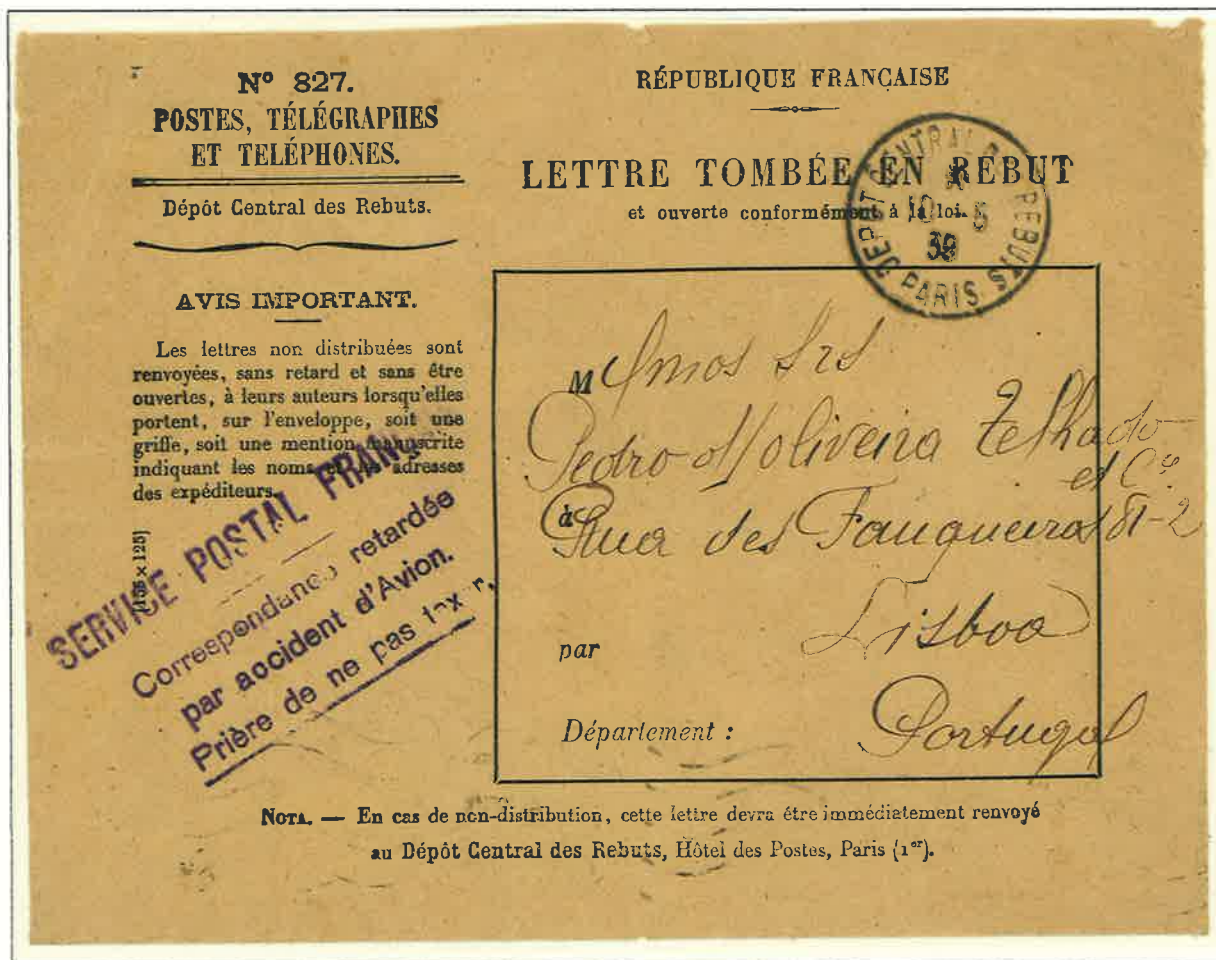 N° 827.
POSTES, TÉLÉGRAPHES
ET TELÉPHONES.
Dépôt Central des Rebuts.
AVIS IMPORTANT.
Les lettres non distribuées sont
renvoyées, sans retard et sans être
ouvertes, à leurs auteurs lorsqu'elles
portent, sur l'enveloppe, soit une
griffe, soit une mention manuscrite
indiquant les noms et les adresses
des expéditeurs.
SERVICE POSTAL FRANÇ
Correspondance retardée
par accident d'Avion.
Prière de ne pas taxer.
RÉPUBLIQUE FRANÇAISE
LETTRE TOMBÉE EN REBUT
et ouverte conformément à la loi.
DEPOT CENTRAL DES REBUTS
10 5
39
PARIS
M Srs
Pedro d'oliveira Telhado
et Cie
à Rua des Fauqueiros 81-2
par Lisboa
Département : Portugal
NOTA. — En cas de non-distribution, cette lettre devra être immédiatement renvoyé
au Dépôt Central des Rebuts, Hôtel des Postes, Paris (1er).